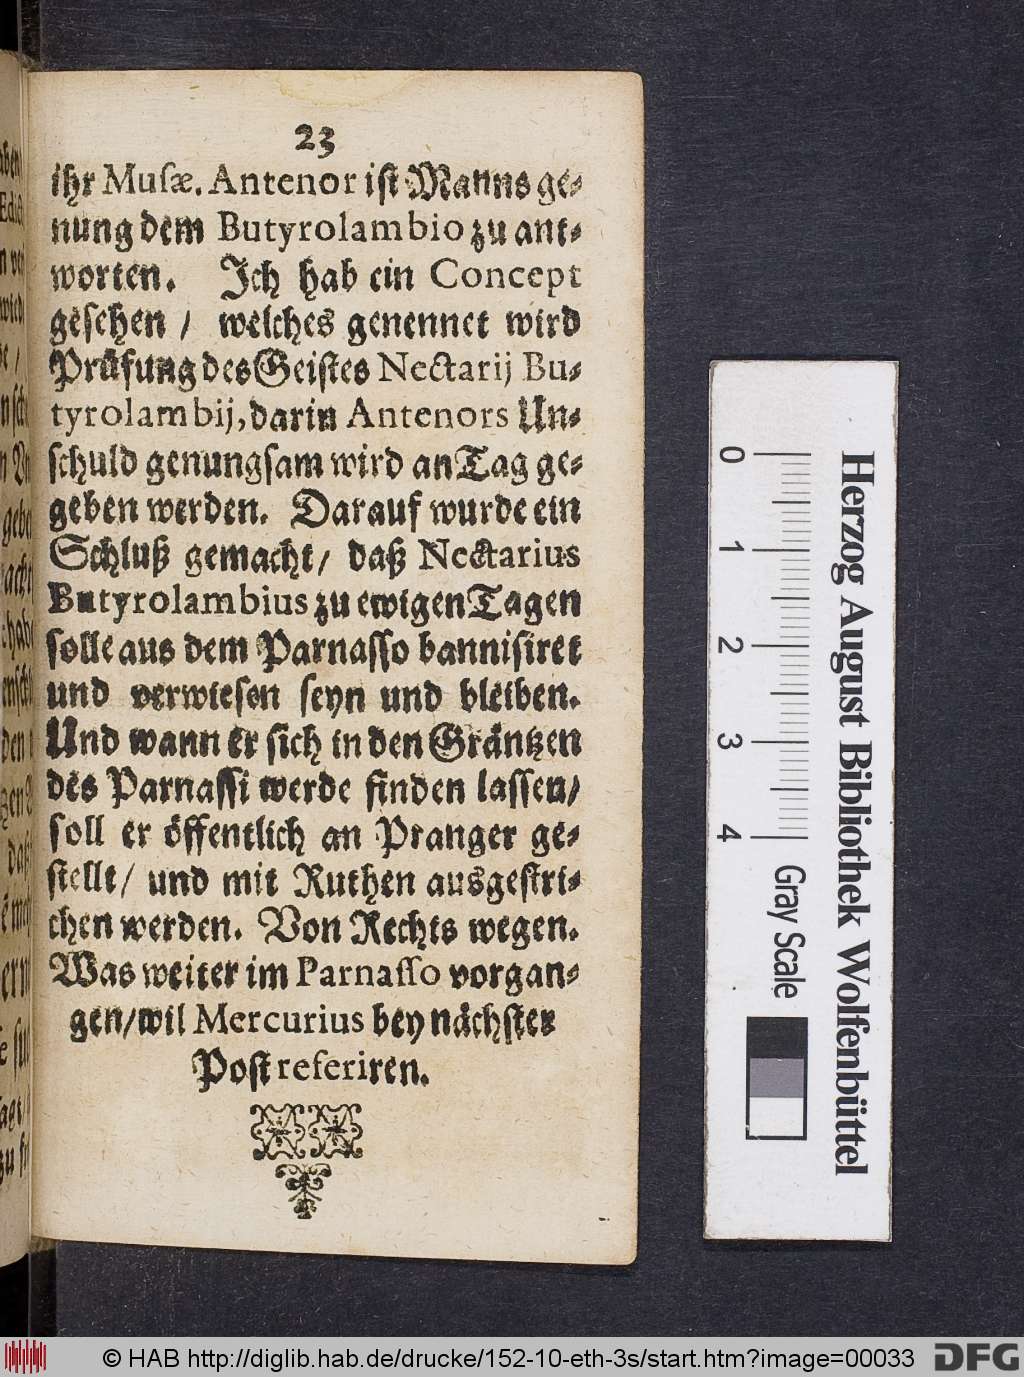 23
ihr Muſæ. Antenor iſt Manns ge-
nung dem Butyrolambio zu ant-
worten. Ich hab ein Concept
geſehen / welches genennet wird
Prüfung des Geiſtes Nectarij Bu-
tyrolambij, darin Antenors Un-
ſchuld genungſam wird an Tag ge-
geben werden. Darauf wurde ein
Schluß gemacht / daß Nectarius
Butyrolambius zu ewigen Tagen
ſolle aus dem Parnaſſo banniſiret
und verwieſen ſeyn und bleiben.
Und wann er ſich in den Gräntzen
des Parnaſſi werde finden laſſen /
ſoll er öffentlich an Pranger ge-
ſtellt / und mit Ruthen ausgeſtri-
chen werden. Von Rechts wegen.
Was weiter im Parnaſſo vorgan-
gen / wil Mercurius bey nächſter
Poſt referiren.
Herzog August Bibliothek Wolfenbüttel
0 1 2 3 4 Gray Scale
© HAB http://diglib.hab.de/drucke/152-10-eth-3s/start.htm?image=00033
DFG